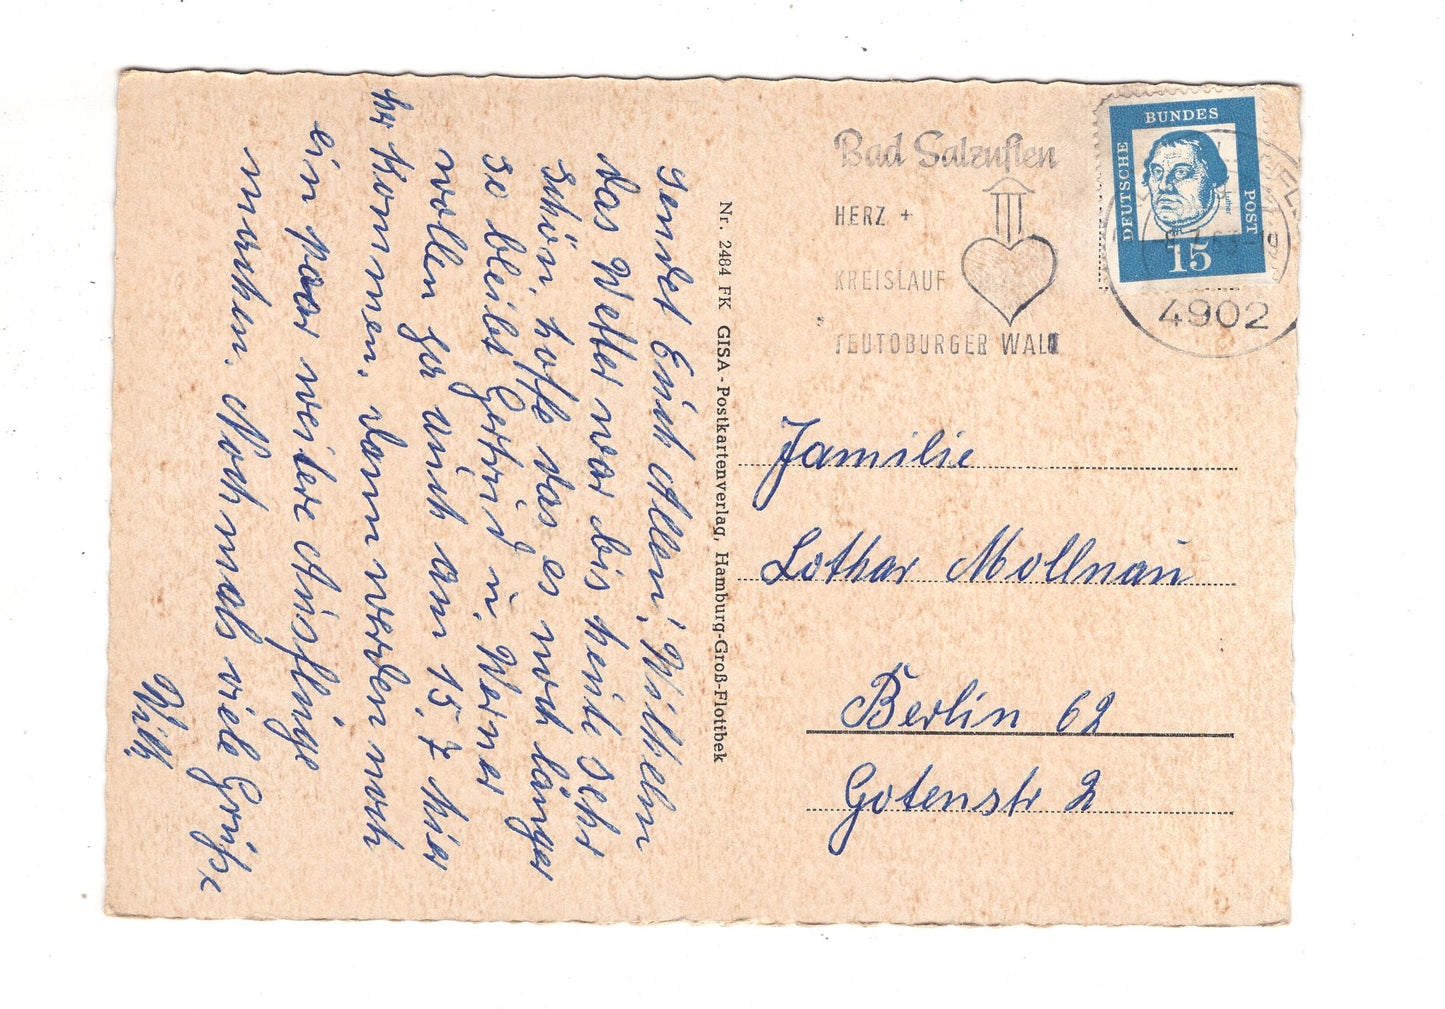 sendet Euch Allen, Wilhelm
das Wetter war bis heute sehr
schön, hoffe das es noch länger
so bleibt Gertrud u. Werner
wollen ja auch am 15. 7 hier
her kommen, dann werden noch
ein paar weitere Ausflüge
machen. Nochmals viele Grüße
Willy
Nr. 2484 FK GISA-Postkartenverlag, Hamburg-Groß-Flottbek
Bad Salzuflen
HERZ +
KREISLAUF
TEUTOBURGER WALD
DEUTSCHE
BUNDES
POST
15
4902
Familie
Lothar Mollnau
Berlin 62
Gotenstr 2